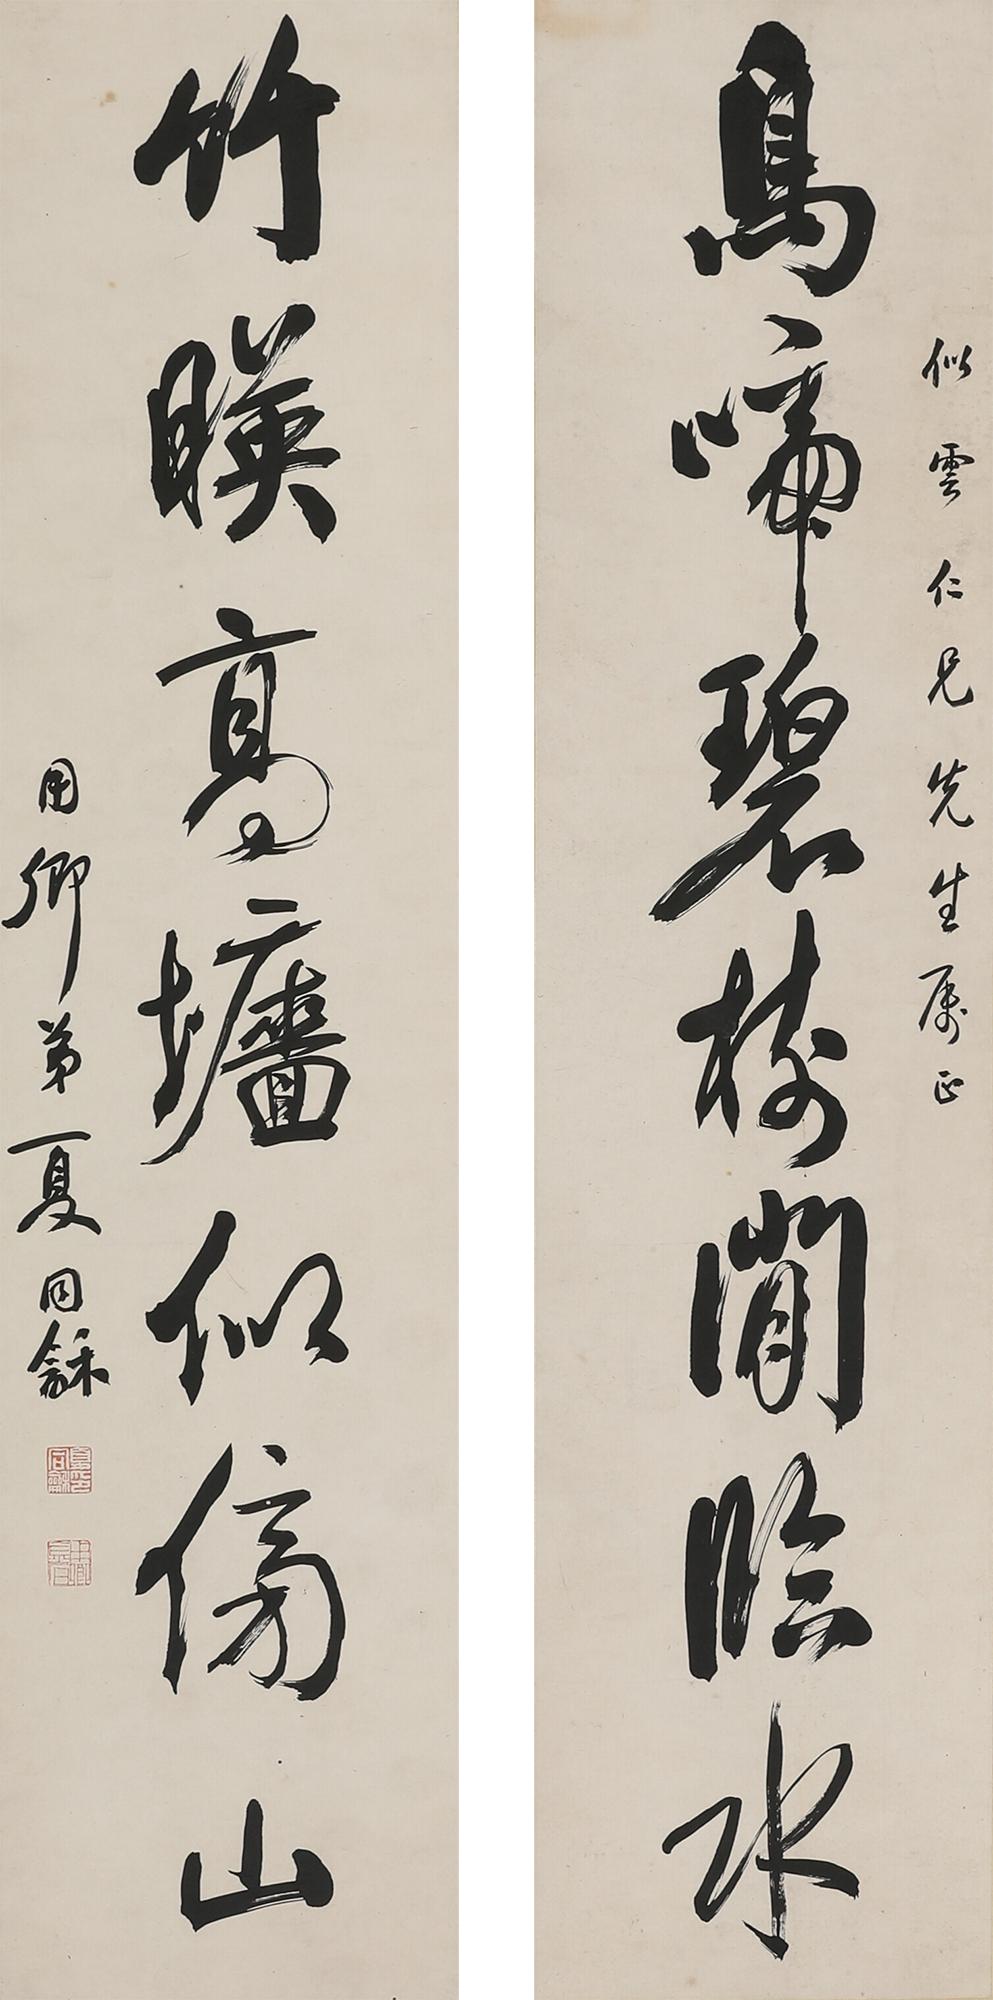 似雲仁兄先生属正
鳥啼碧樹閒臨水
竹暎高墻似傍山
用卿弟夏同龢
夏同龢印